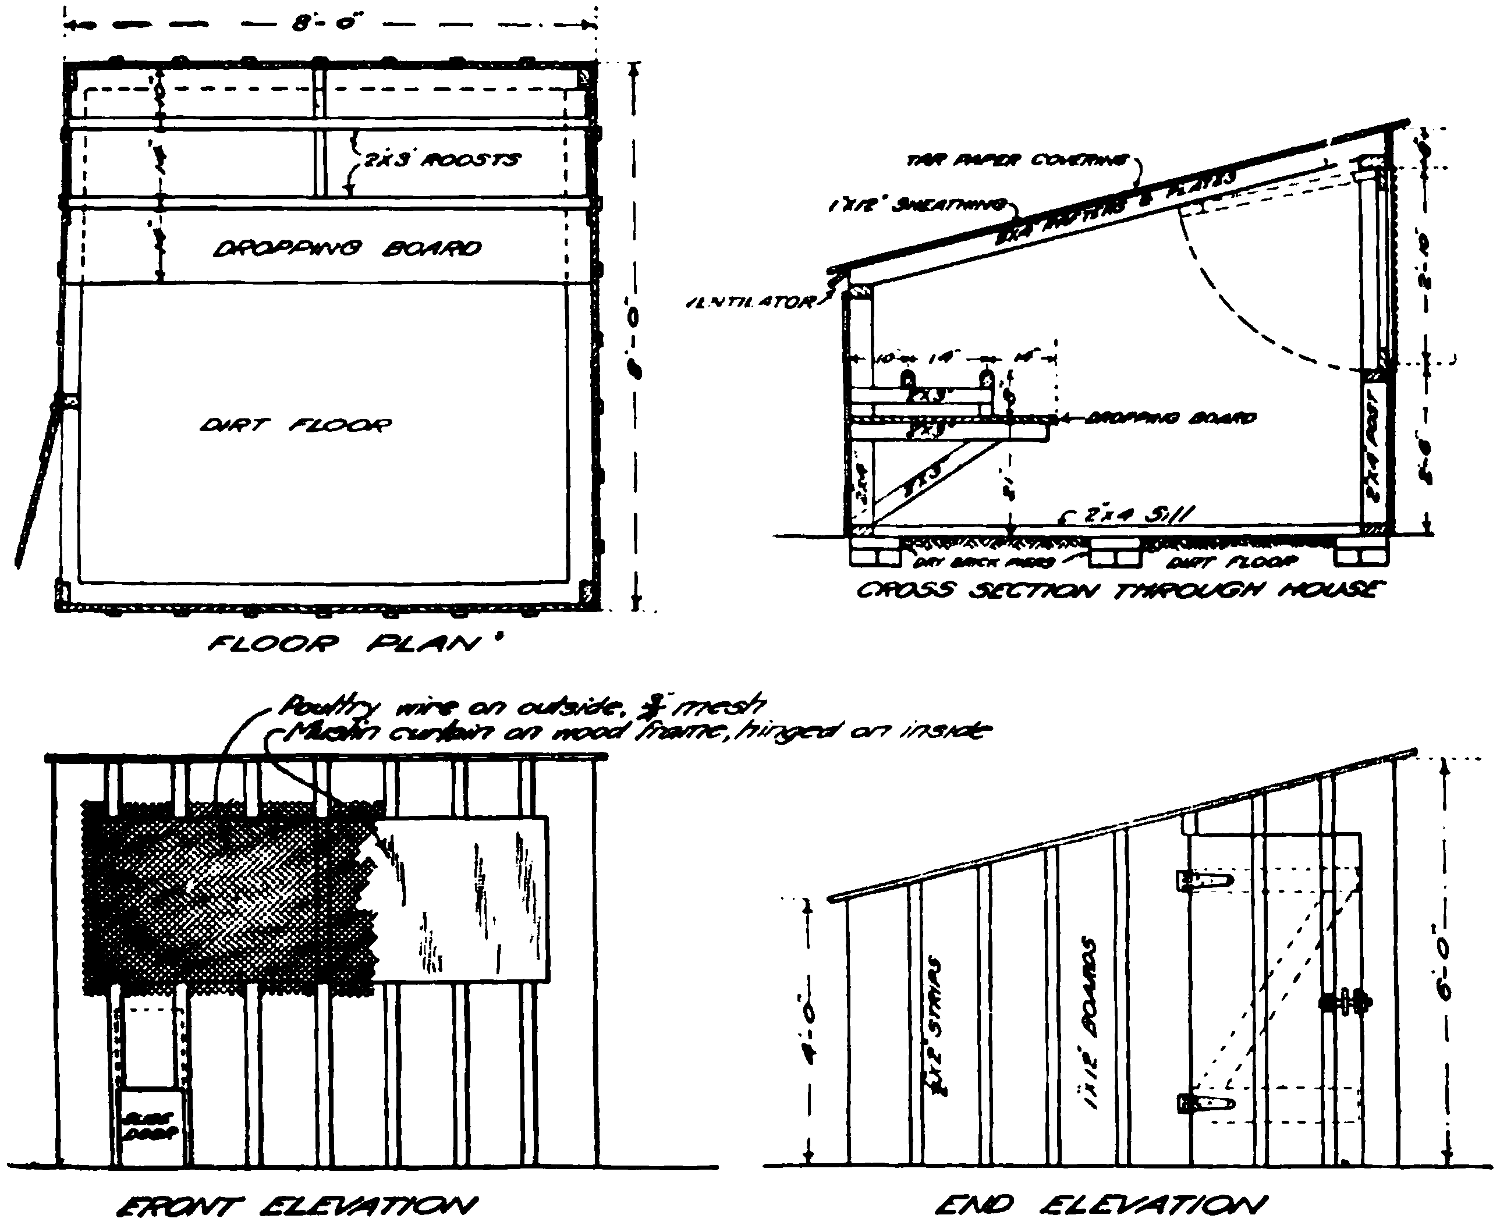 8'-0"
2"X3" ROOSTS
DROPPING BOARD
8'-0"
DIRT FLOOR
FLOOR PLAN
TAR PAPER COVERING
1"X12" SHEATHING
2X4 RAFTERS & PLATES
VENTILATOR
2'-10"
10" 14" 14"
2"X3"
DROPPING BOARD
2"X3"
2X4
2X3
21"
2"X4" POST
2"X4 Sill
DRY BRICK PIERS
DIRT FLOOR
CROSS SECTION THROUGH HOUSE
Poultry wire on outside, 3/4" mesh
Muslin curtain on wood frame, hinged on inside
SLIDE
DOOR
FRONT ELEVATION
4'-0"
X2" STRIPS
1"X12" BOARDS
6'-0"
END ELEVATION